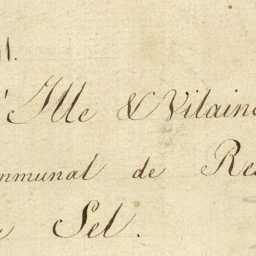 'Ille & Vilaine
mmunal de Re
Sel.